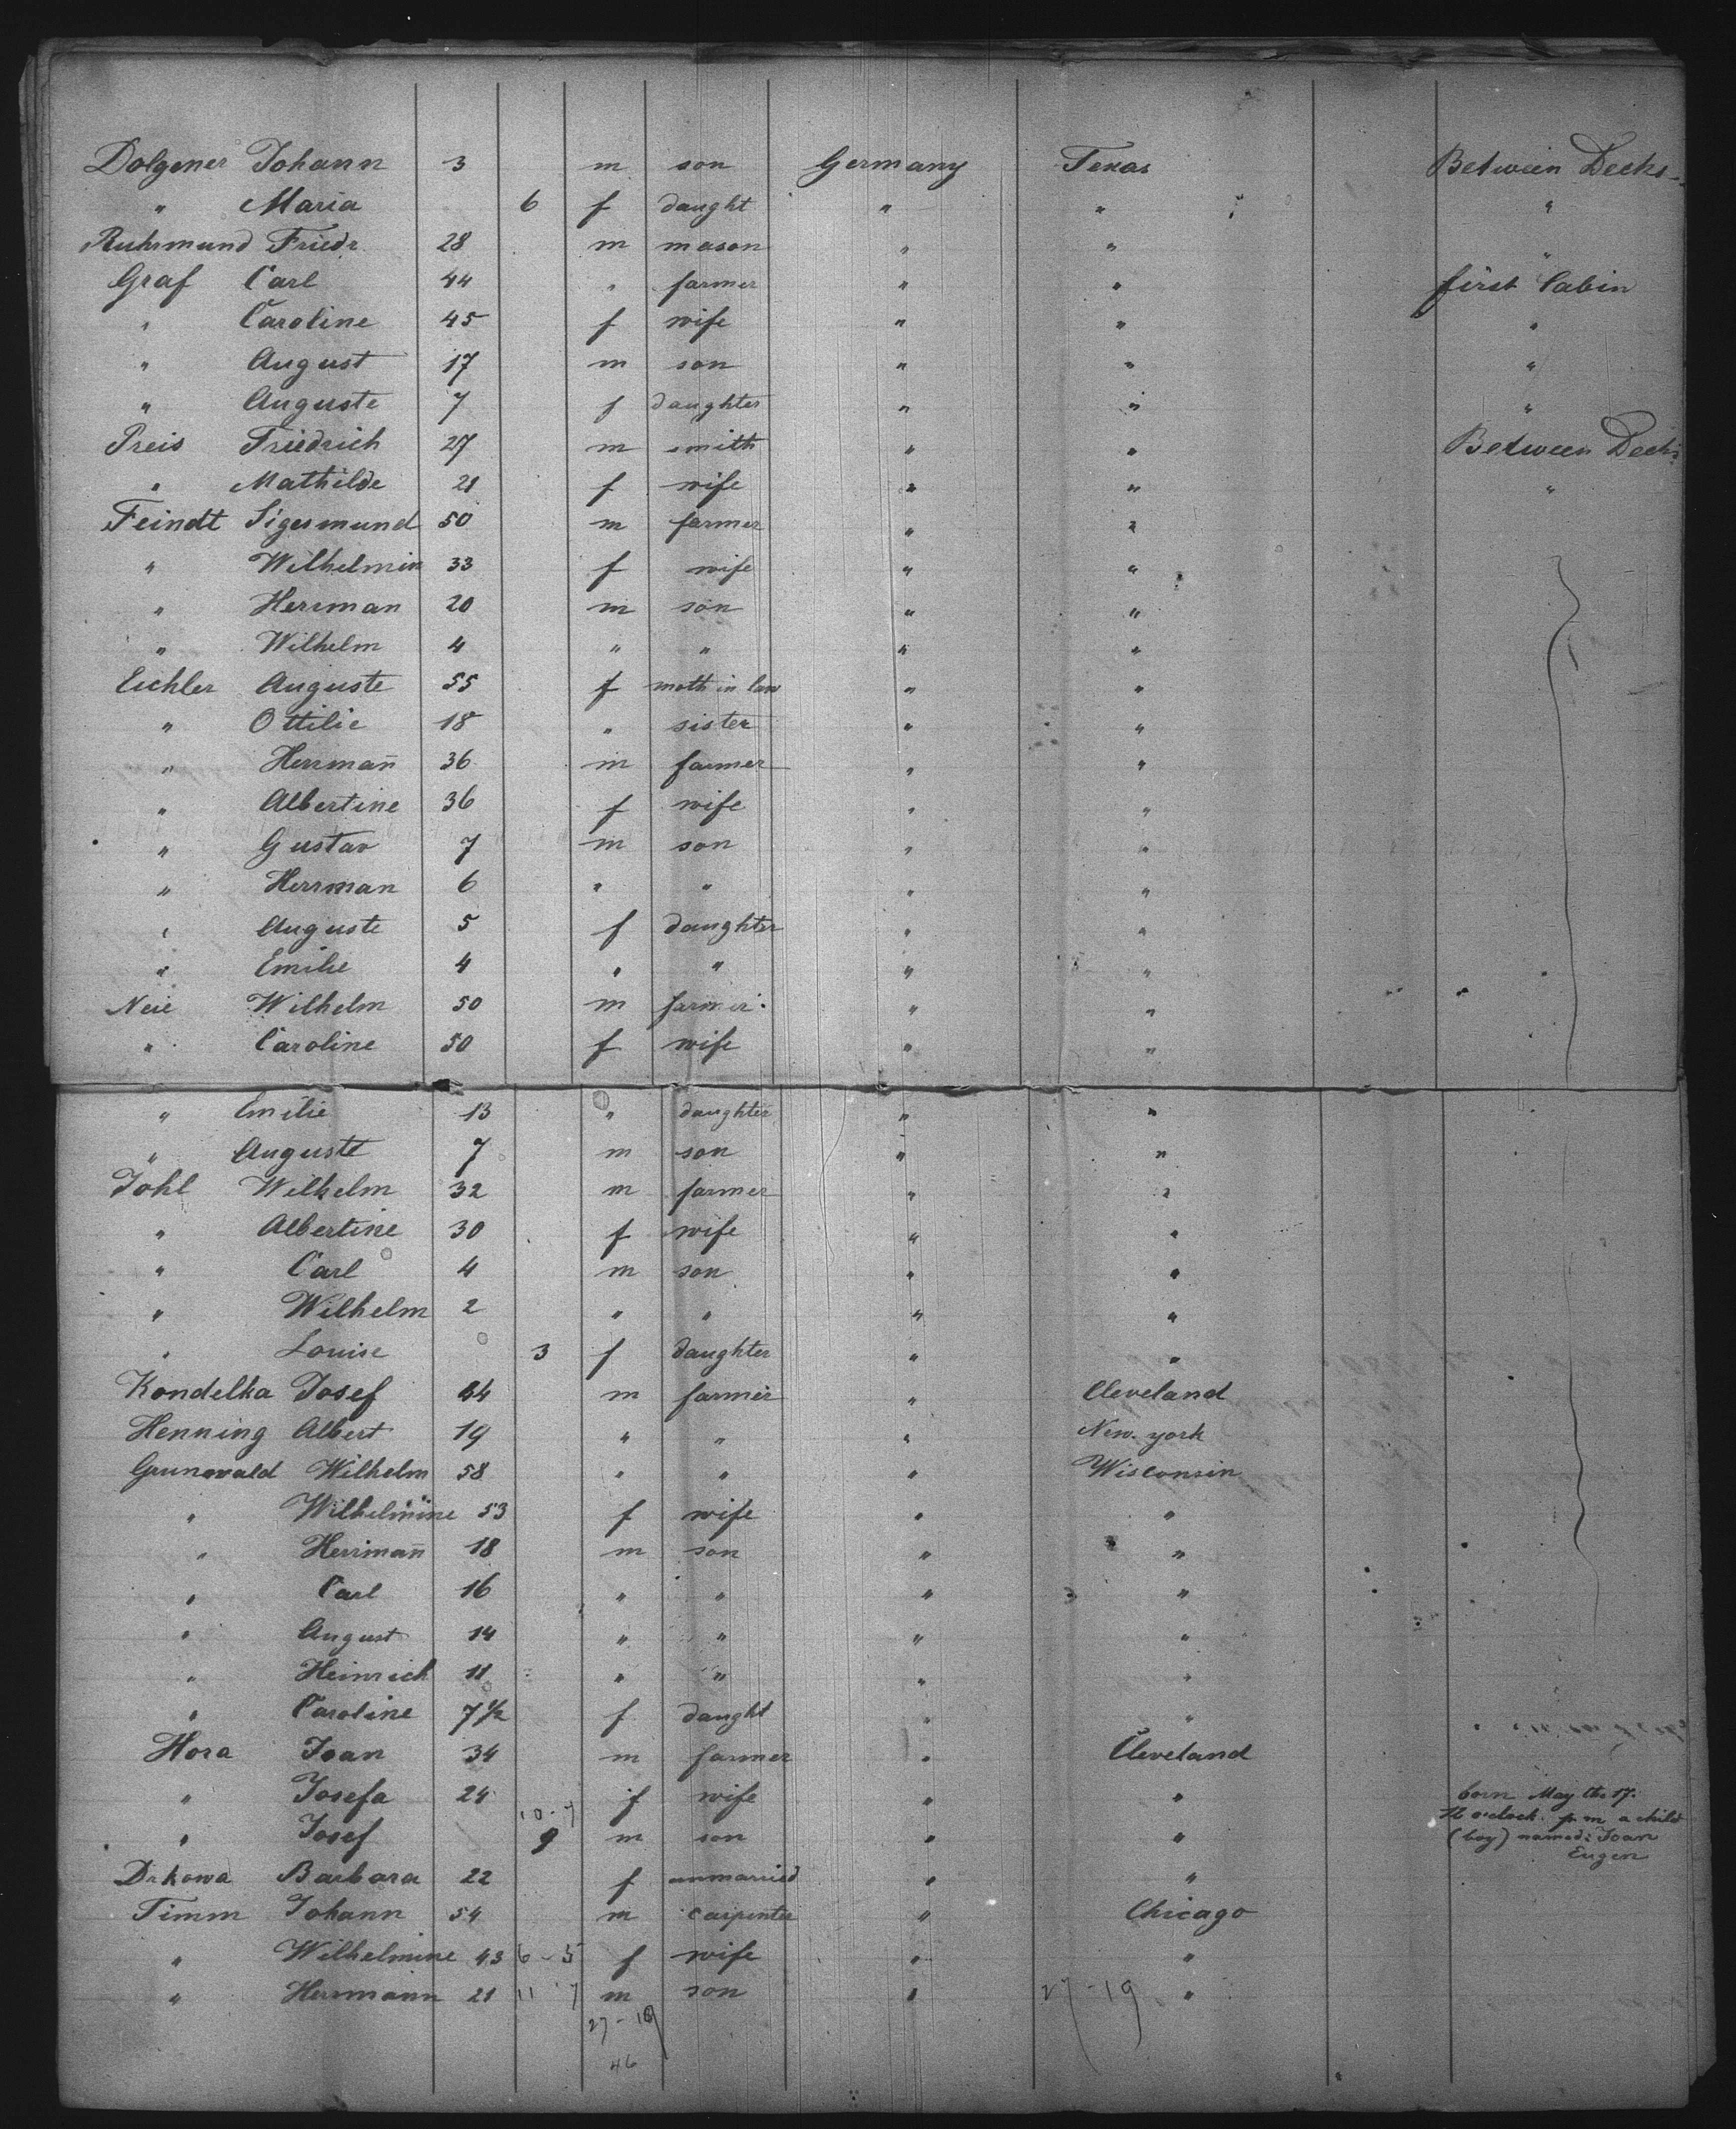 Dolgener Johann 3 m son Germany Texas Between Decks
" Maria 6 f daught " " "
Ruhrmund Friedr. 28 m mason " " "
Graf Carl 44 " farmer " " first Cabin
" Caroline 45 f wife " " "
" August 17 m son " " "
" Auguste 7 f daughter " " "
Preis Friedrich 27 m smith " " Between Decks
" Mathilde 21 f wife " " "
Feindt Sigesmund 50 m farmer " "
" Wilhelmin 33 f wife " "
" Herrman 20 m son " "
" Wilhelm 4 " " " "
Eichler Auguste 55 f moth in law " "
" Ottilie 18 " sister " "
" Herrman̄ 36 m farmer " "
" Albertine 36 f wife " "
" Gustav 7 m son " "
" Herrman 6 " " " "
" Auguste 5 f daughter " "
" Emilie 4 " " " "
Neie Wilhelm 50 m farmer " "
" Caroline 50 f wife " "
" Emilie 13 " daughter " "
" Auguste 7 m son " "
Johl Wilhelm 32 m farmer " "
" Albertine 30 f wife " "
" Carl 4 m son " "
" Wilhelm 2 " " " "
" Louise 3 f daughter " "
Kondelka Josef 44 m farmer " Cleveland
Henning Albert 19 " " " New. york
Grunwald Wilhelm 58 " " " Wisconsin
" Wilhelmine 53 f wife " "
" Herrman̄ 18 m son " "
" Carl 16 " " " "
" August 14 " " " "
" Heinrich 11 " " " "
" Caroline 7 1/2 f daught " "
Hora Joan 34 m farmer " Cleveland
" Josefa 24 f wife " " born May the 17.
10-7 o'clock. p m a child
" Josef 9 m son " " (boy) named: Joan
Eugen
Drkowa Barbara 22 f unmarried " "
Timm Johann 54 m carpenter " Chicago
" Wilhelmine 43 6-5 f wife " "
" Herrmann 21 11 7 m son " 27-19 "
27-19
46